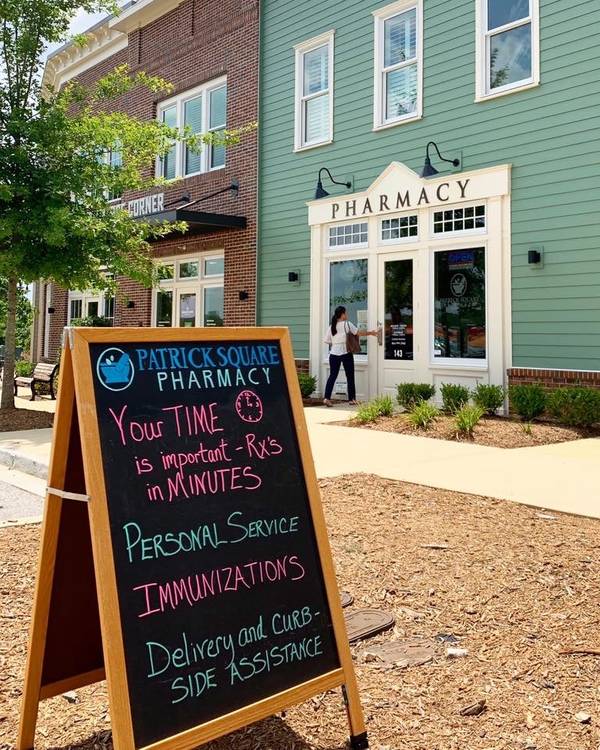 CORNER
PHARMACY
OPEN
PATRICK SQUARE
143
PATRICK SQUARE
PHARMACY
Your TIME
is important - Rx's
in MINUTES
PERSONAL SERVICE
IMMUNIZATIONS
Delivery and CURB-
SIDE ASSISTANCE